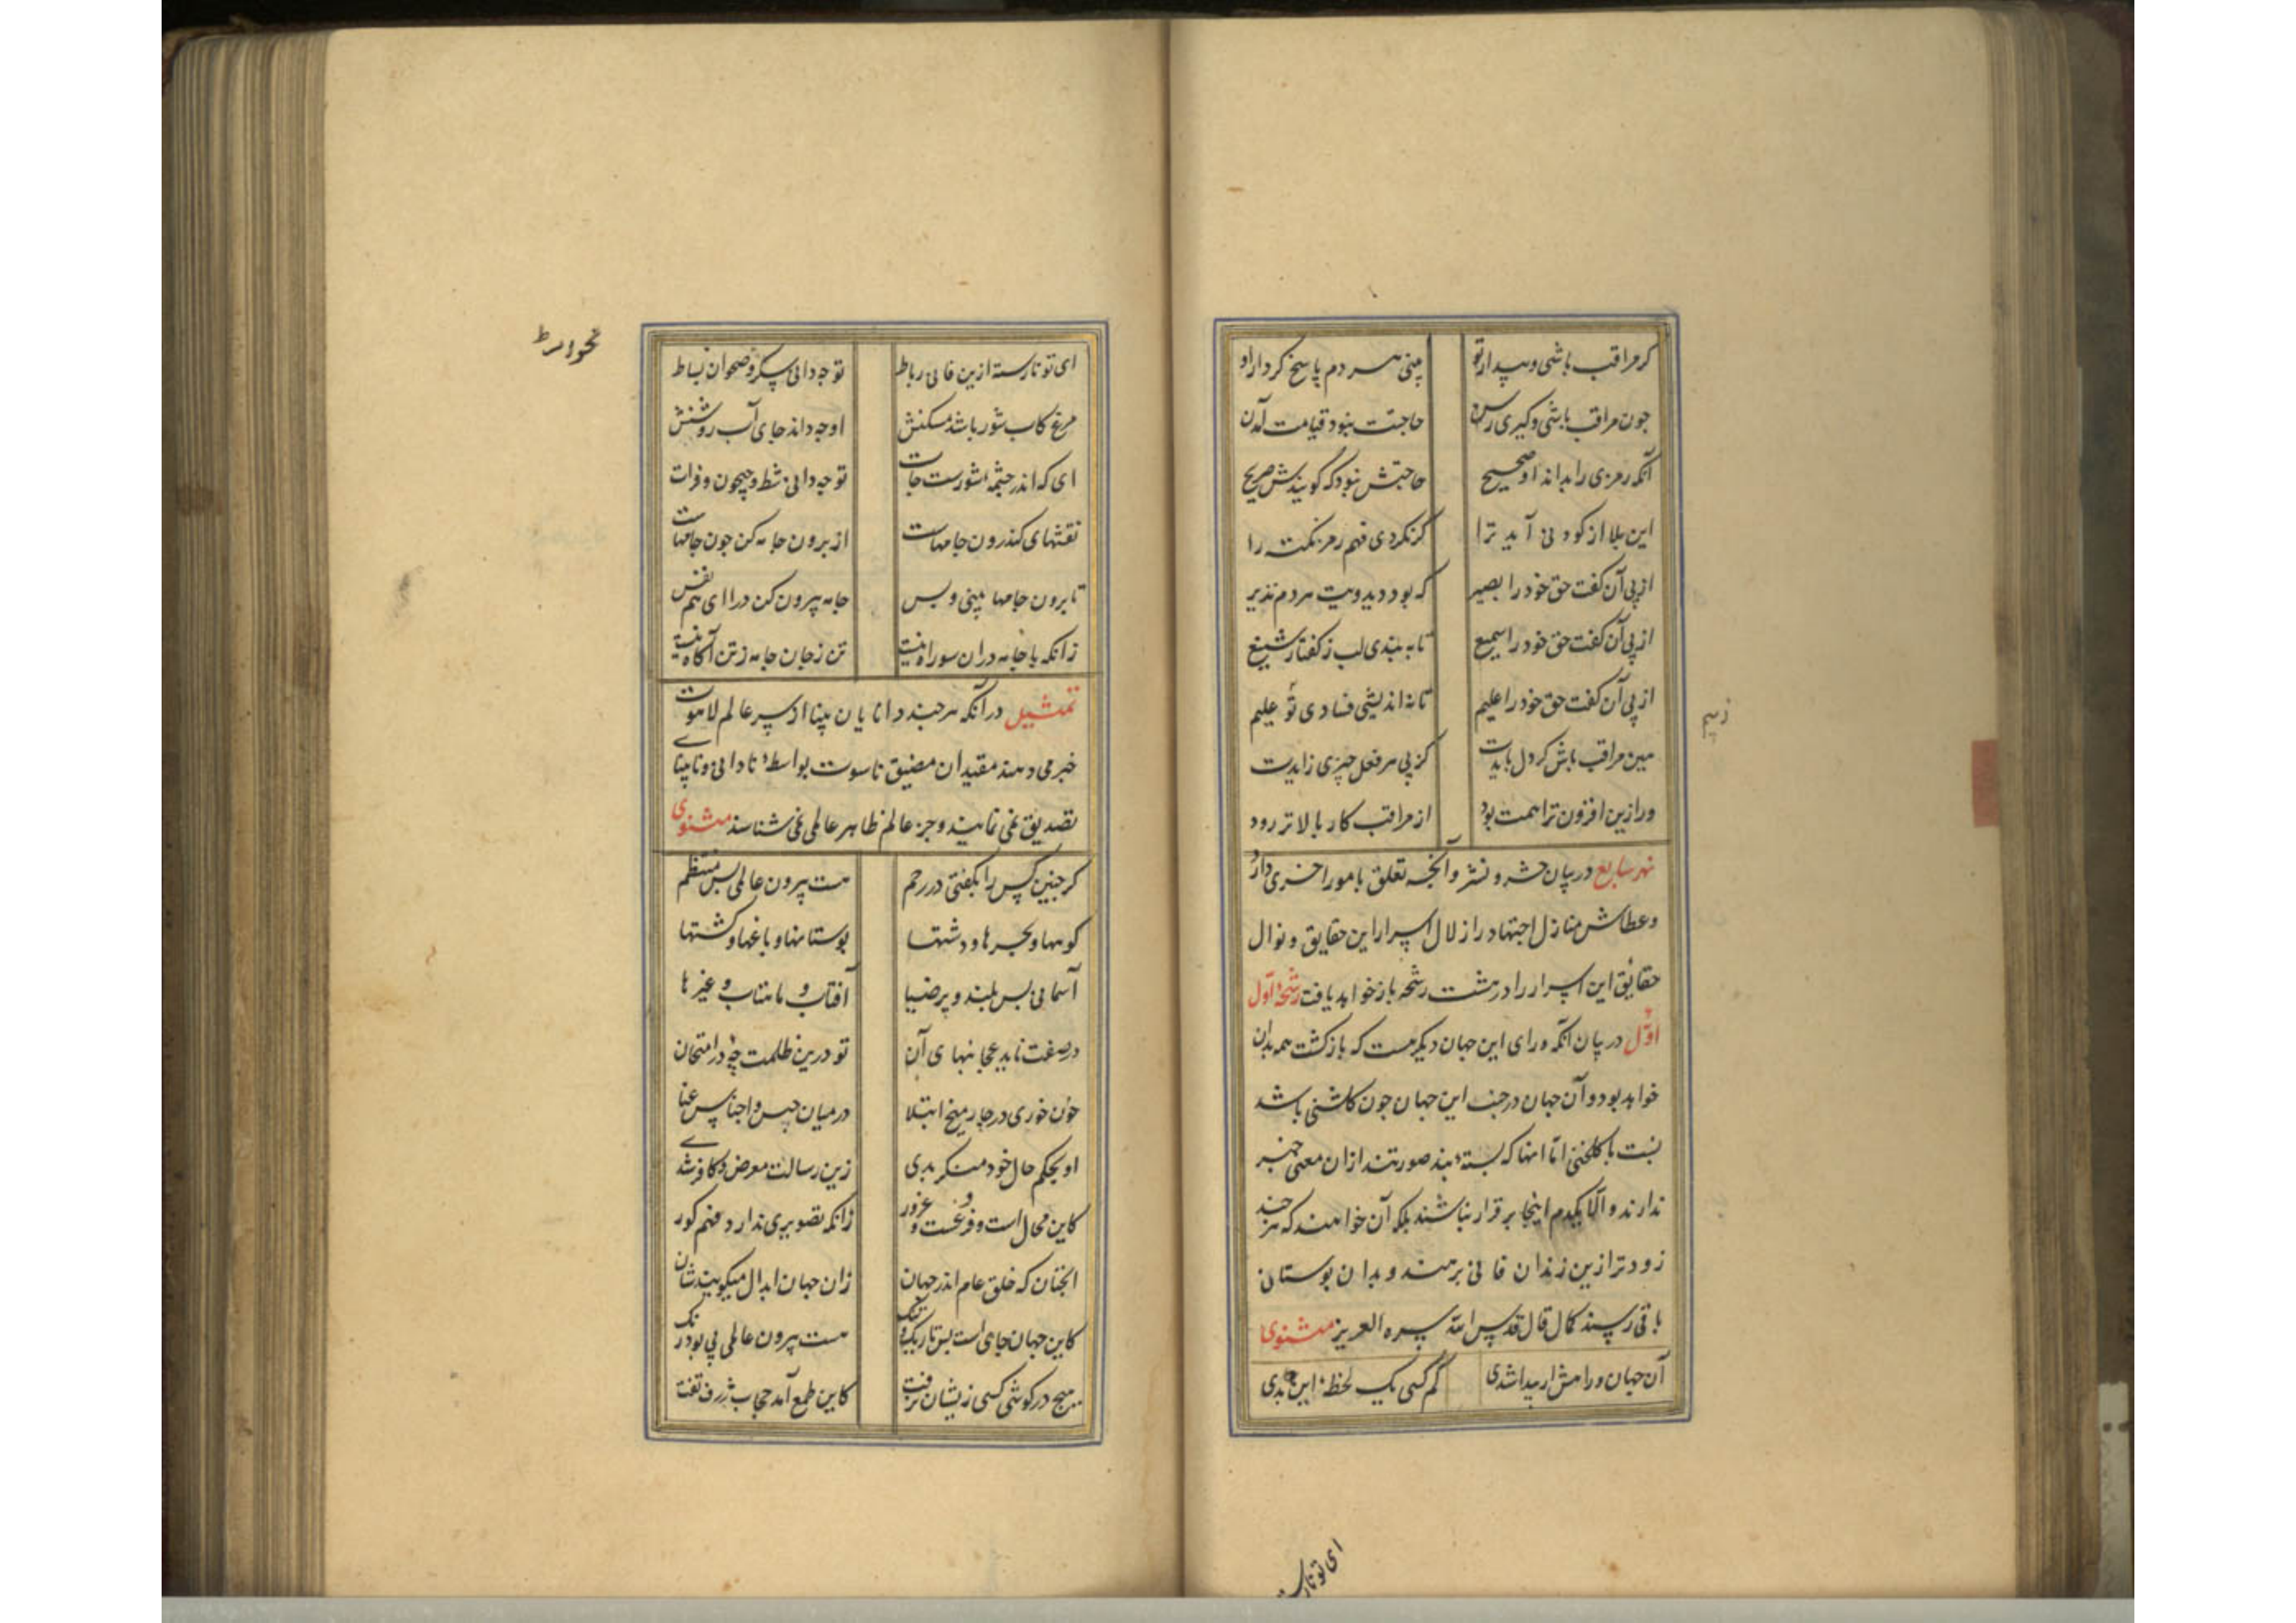 کر مراقب باشی و بیدار تو بینی هر دم پاسخ کردار او
جون مراقب باشی و کیری رسن حاجتت نبود قیامت آمدن
آنکه رمزی را بداند او صحیح حاجتش نبود که کویندش صریح
این بلا از کودنی آید ترا کر نکردی فهم رمز نکته را
از پی آن کفت حق خود را بصیر که بود دید ویت هر دم نذیر
از پی آن کفت حق خود را سمیع تا به بندی لب ز کفتار شنیع
از پی آن کفت حق خود را علیم تا نه اندیشی فسادی تو ز بیم
هین مراقب باش کر دل بایدت کز پی هر فعل چیزی زایدت
ور ازین افزون ترا همت بود از مراقب کار بالاتر رود
نهر سابع در بیان حشر و نشر و آنچه تعلق بامور اخری دارد
و عطاش منازل اجتهاد را زلال اسرار این حقایق و نوال
حقائق این اسرار را در هشت رشحه باز خواهد یافت رشحهٔ اول
اول در بیان آنکه ورای این جهان دیکر هست که بازکشت همه بدان
خواهد بود و آن جهان در جنب این جهان جون کلشنی باشد
نسبت با کلخنی اما انها که بستهٔ بند صورتند ازان معنی خبر
ندارند و الا یکدم اینجا بر قرار نباشند بلکه آن خواهند که هر چند
زودتر ازین زندان فانی برهند و بدان بوستان
باقی رسند کمال قال قدس الله سره العزیز مثنوی
آن جهان و راهش ار پیدا شدی کم کسی یک لحظهٔ اینجا بدی
ای تو نارسته
ای تو نارسته ازین فانی رباط تو جه دانی سکر و صحو ان بساط
مرغ کاب شور باشد مسکنش او جه داند جای آب روشنش
ای که اندر چشمهٔ شورست جات تو جه دانی شط و جیحون و فرات
نقشهای کندرون جامهاست از برون جامه کن جون جامهاست
تا برون جامها بینی و بس جامه بیرون کن درا ای هم نفس
زانکه با جامه دران سو راه نیست تن ز جان جامه ز تن آکاه نیست
تمثیل در آنکه هر چند دانایان بینا از سر عالم لاهوت
خبر می دهند مقیدان مضیق ناسوت بواسطهٔ نادانی و نابینایی
تصدیق نمی نمایند و جز عالم ظاهر عالمی نمی شناسند مثنوی
کر جنین کس را بکفتی در رحم هست بیرون عالمی بس منتظم
کوهها و بحرها و دشتها بوستانها و باغها و کشتها
آسمانی بس بلند و پر ضیا آفتاب و ماهتاب و غیرها
در صفت ناید عجائبهای آن تو درین ظلمت چهٔ در امتحان
خون خوری در چار میخ ابتلا در میان حبس و اجناس عنا
او بحکم حال خود منکر بدی زین رسالت معرض و کافر شدی
کاین محال است و فریبست و غرور زانکه تصویری ندارد فهم کور
انجنان که خلق عام اندر جهان زان جهان ابدال میکویندشان
کاین جهان جای است بس تاریک و تنک هست بیرون عالمی بی بو و رنک
هیچ در کوش کسی زیشان نرفت کاین طمع آمد حجاب ژرف تفت